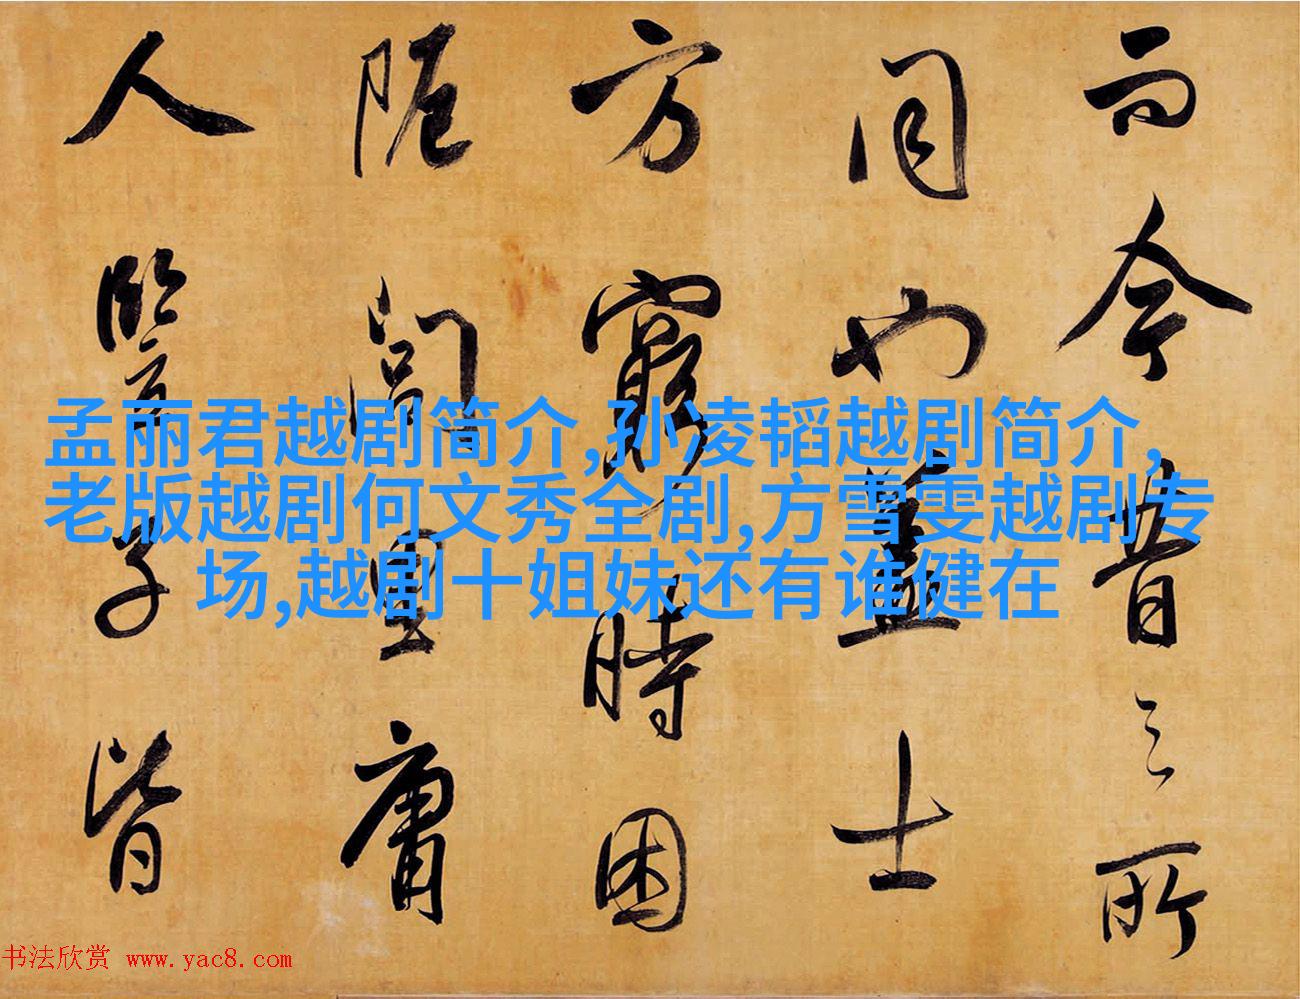 而今昔之所
同也蓋士
方窮時困
阨閭里庸
人豎子皆
孟丽君越剧简介,孙凌韬越剧简介,
老版越剧何文秀全剧,方雪雯越剧专
场,越剧十姐妹还有谁健在
书法欣赏 www.yac8.com